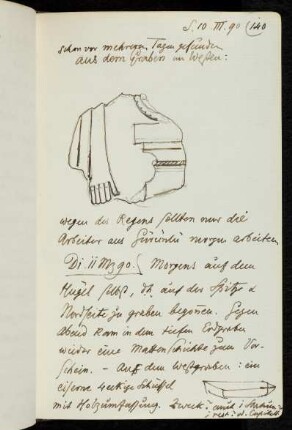 S. 10 III. 90 (140
schon vor mehreren Tagen gefunden
aus dem Graben im Westen:
wegen des Regens sollten nur die
Arbeiter aus morgen arbeiten
Di. 11 Mz 90. Morgens auf dem
Hügel selbst, d.h. auf der Spitze &
Nordseite zu graben begonnen. Gegen
Abend kam in dem tiefen Erdgraben
wieder eine Mattenschichte zum Vor-
schein. – Aus dem Westgraben: ein
eiserne 4eckige
mit Holzumfassung. Zweck: